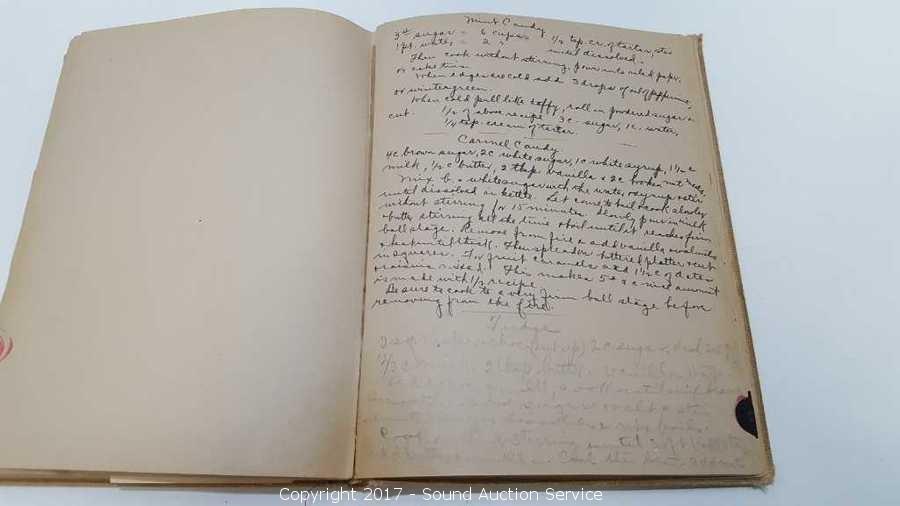 Mint Candy
3# sugar = 6 cups 1/2 tsp. cr. of tartar, stir
1 pt. water = 2 " until dissolved.
Then cook without stirring, pour into oiled paper,
or cake tins.
When edges are cold add 3 drops of oil of peppermint,
or wintergreen.
When cold pull like taffy, roll in powdered sugar &
cut. 1/2 of above recipe 3 c. sugar, 1 c. water,
1/4 tsp. cream of tartar.
Carmel Candy.
4 c. brown sugar, 2 c white sugar, 1 c white syrup, 1 1/2 c
milk, 1/2 c butter, 2 tbsp vanilla & 2 c broken nut meats,
Mix b. & white sugar with the water, syrup & stir
until dissolved in kettle. Let come to boil & cook slowly
without stirring for 15 minutes. Slowly pour in milk
& butter stirring all the time & boil until it reaches firm
ball stage. Remove from fire & add vanilla & walnuts
& beat until thick. Then spread in buttered platter & cut
in squares. For fruit caramels add 1 1/2 c of dates
& raisins mixed. This makes 5# & a nice amount
is made with 1/2 recipe.
Be sure to cook to a very firm ball stage before
removing from the fire.
Fudge
2 sq. (cut up) 2 c sugar,
2/3 c milk, 2 tbsp butter, vanilla
until
sugar
Cook stirring until
Copyright 2017 - Sound Auction Service